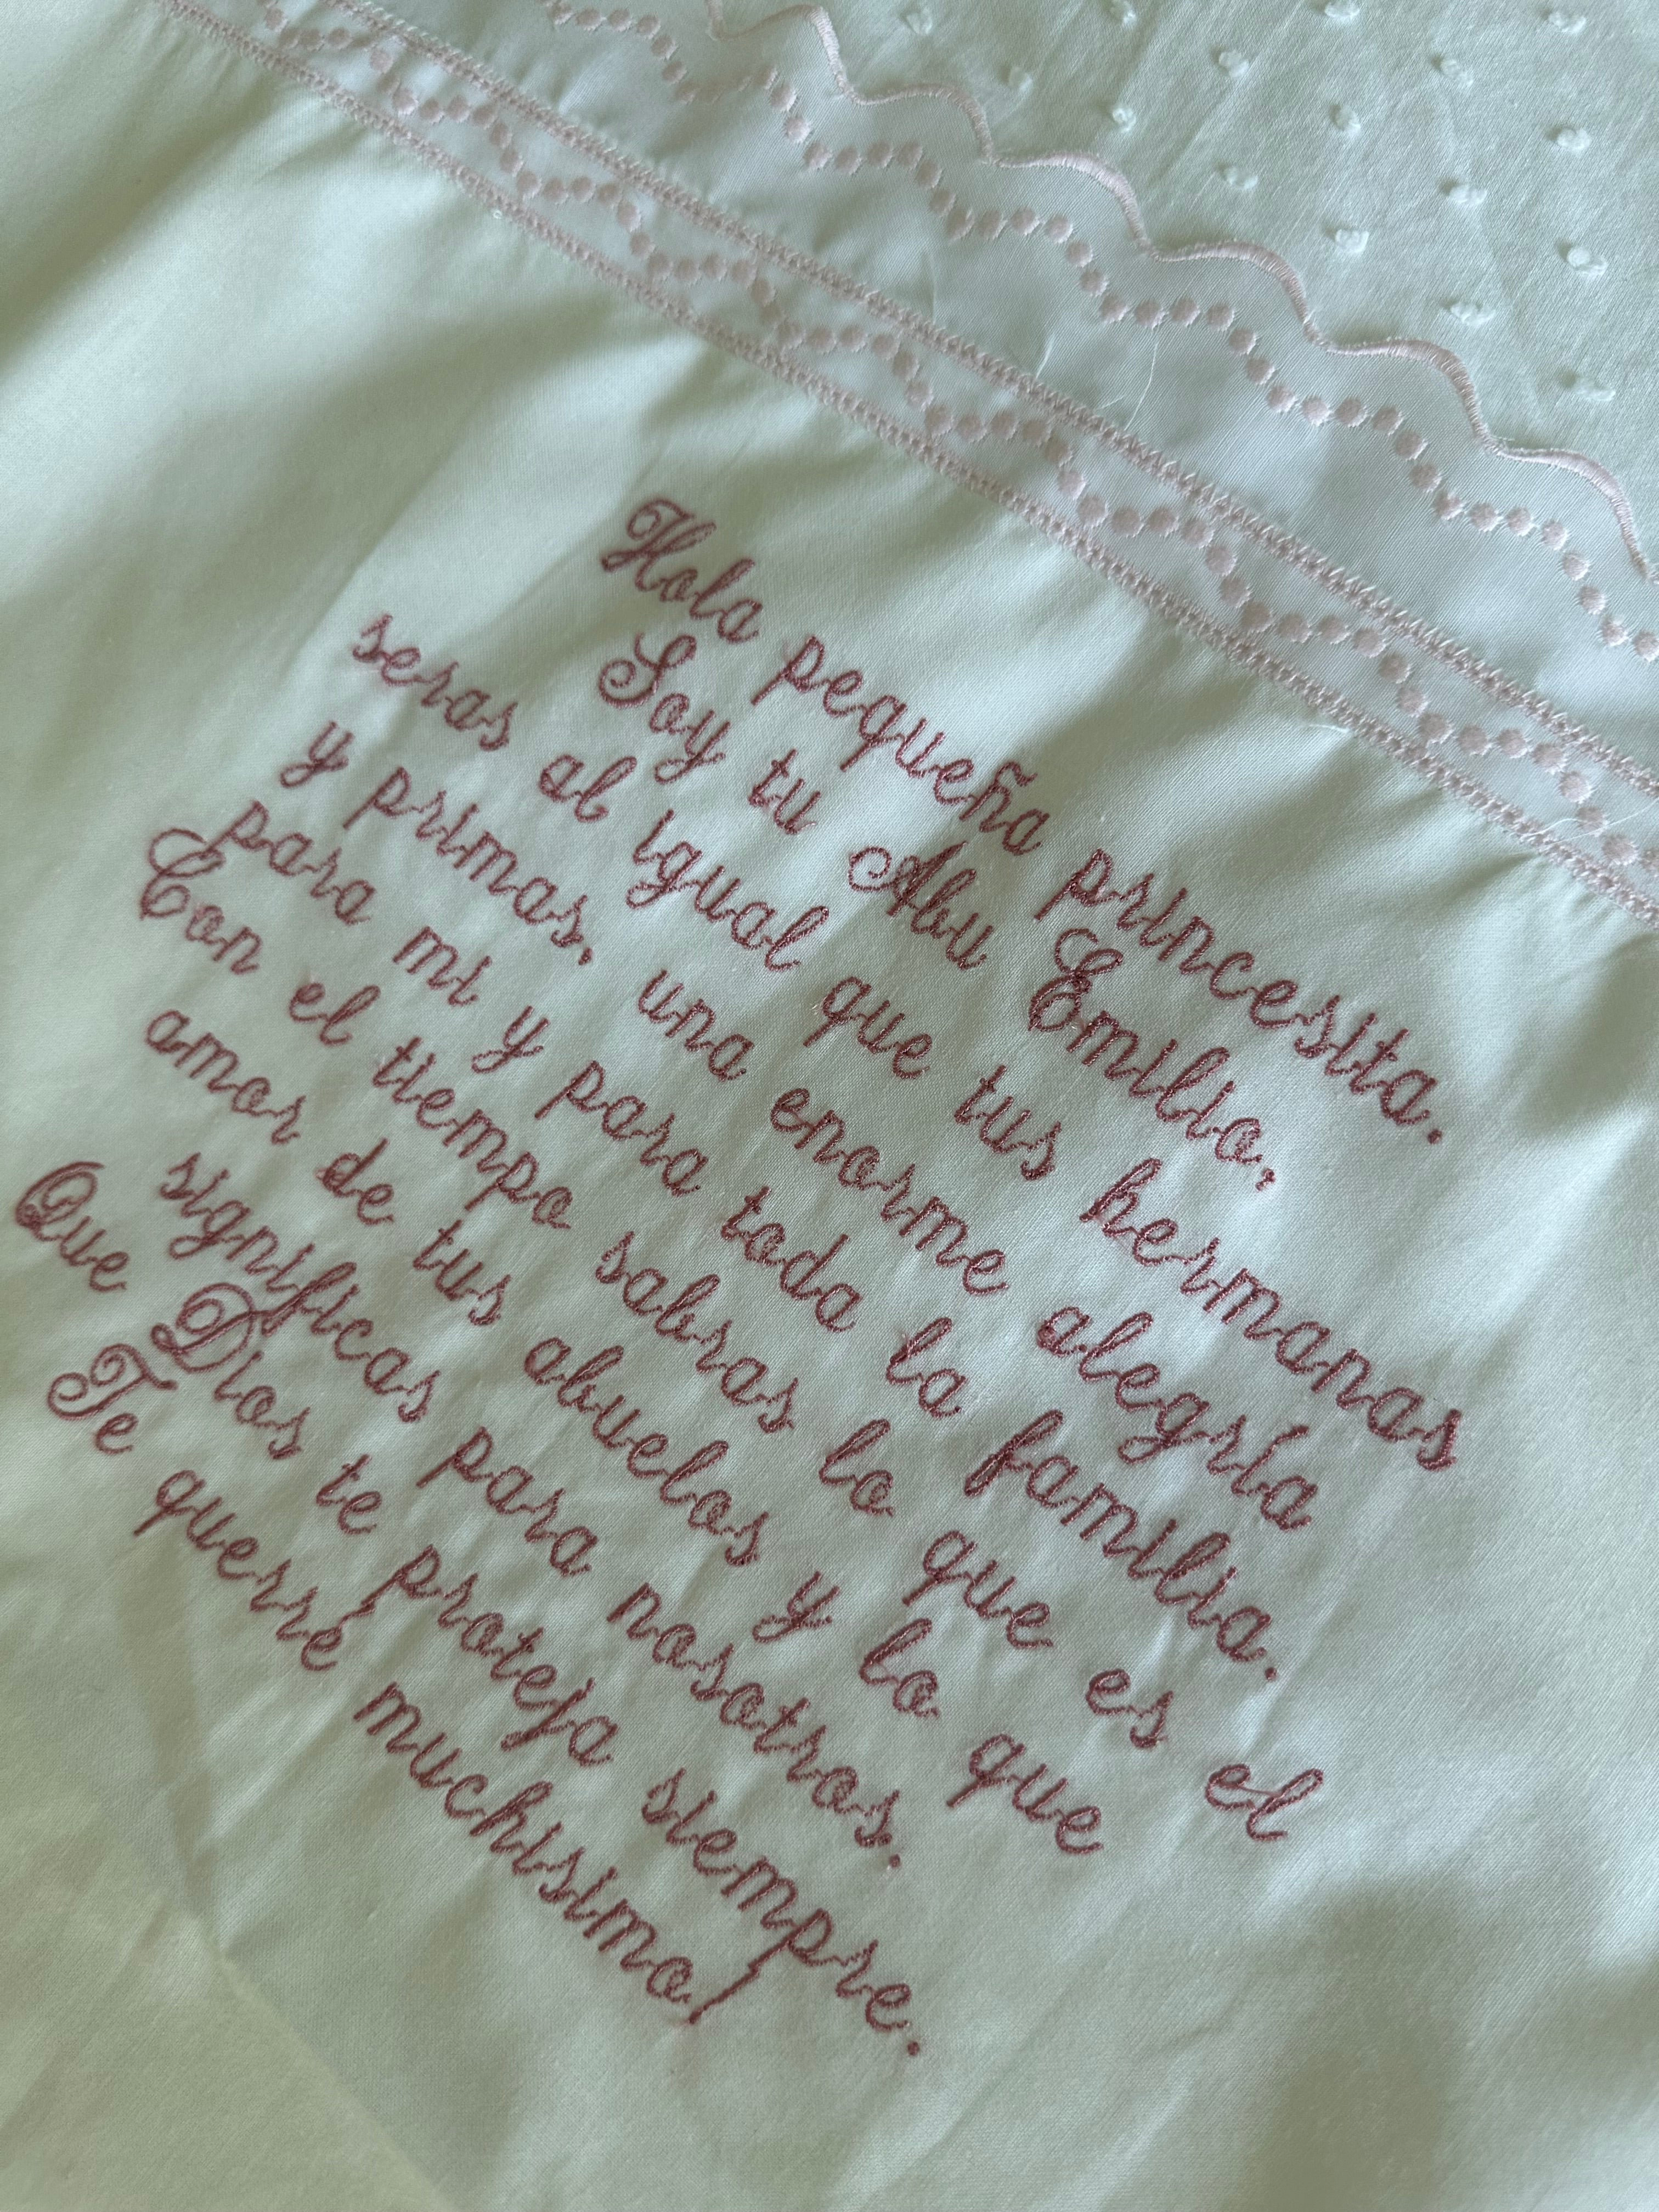 Hola pequeña princesita.
Soy tu Abu Emilia,
seras al igual que tus hermanas
y primas, una enorme alegría
para mi y para toda la familia.
Con el tiempo sabras lo que es el
amor de tus abuelos y lo que
significas para nosotros.
Que Dios te proteja siempre.
Te querré muchisimo!